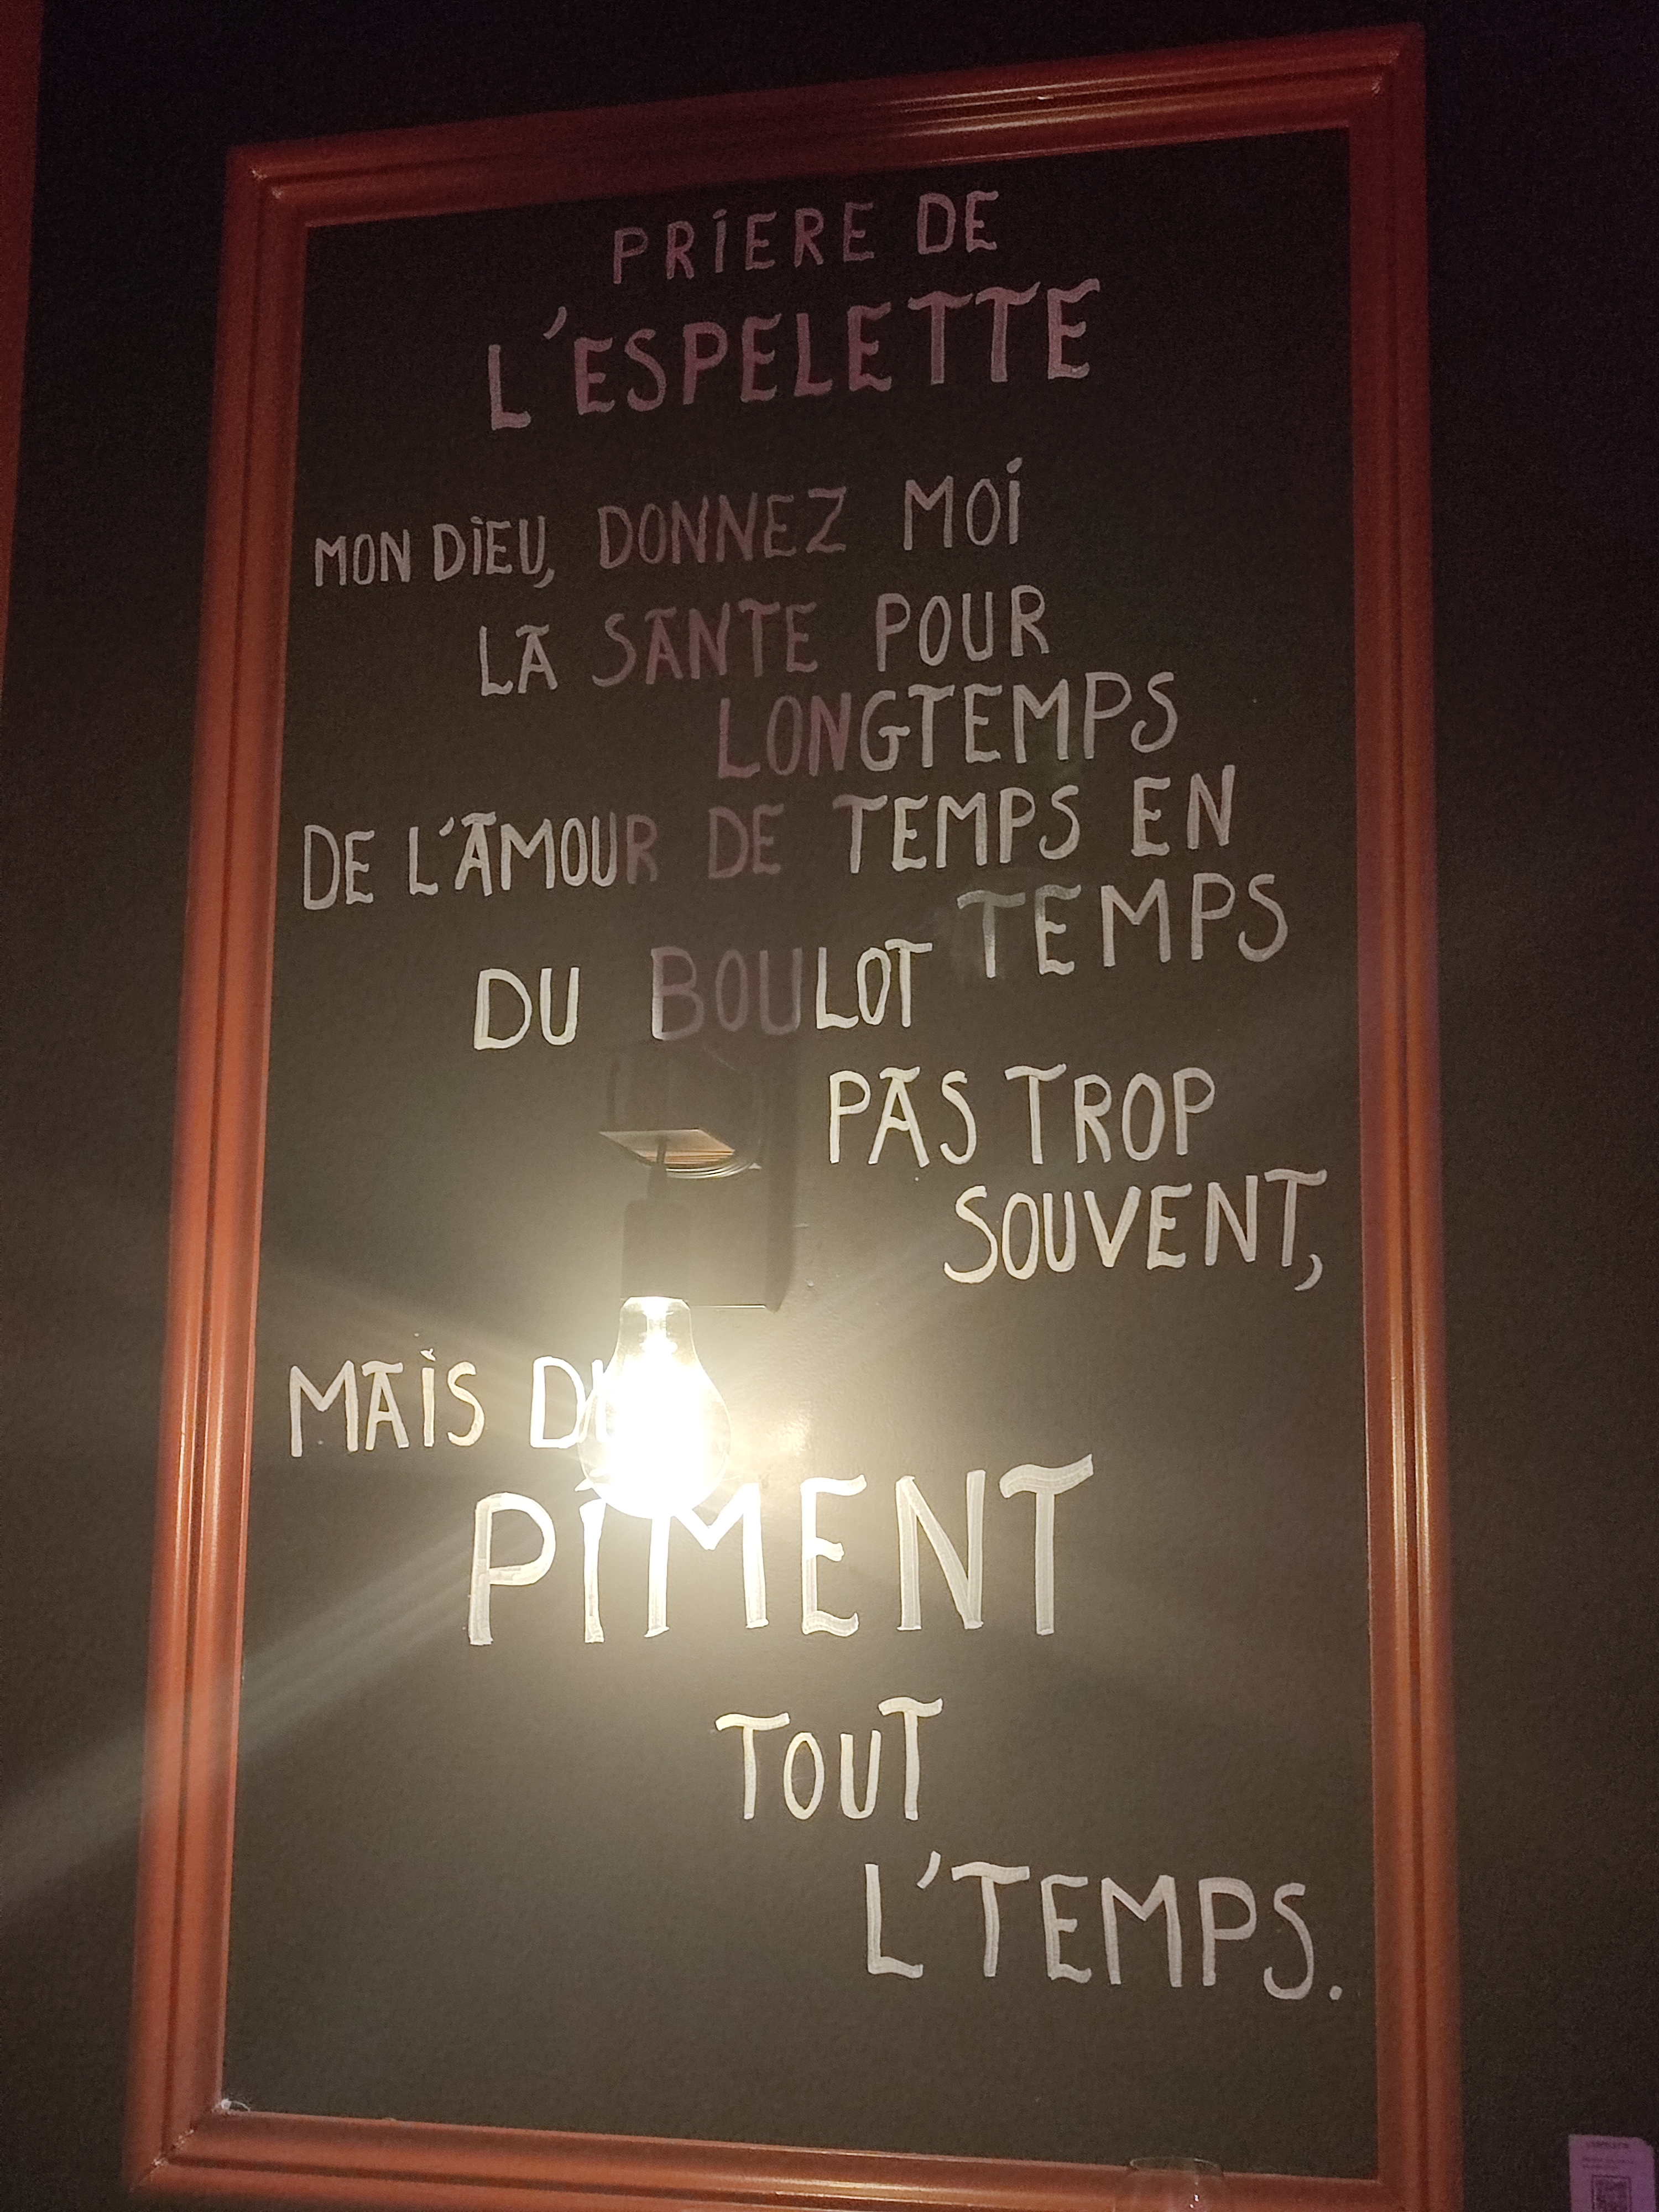 PRIERE DE
L'ESPELETTE
MON DIEU, DONNEZ MOI
LA SANTE POUR
LONGTEMPS
DE L'AMOUR DE TEMPS EN
TEMPS
DU BOULOT
PAS TROP
SOUVENT,
MAIS DU
PIMENT
TOUT
L'TEMPS.